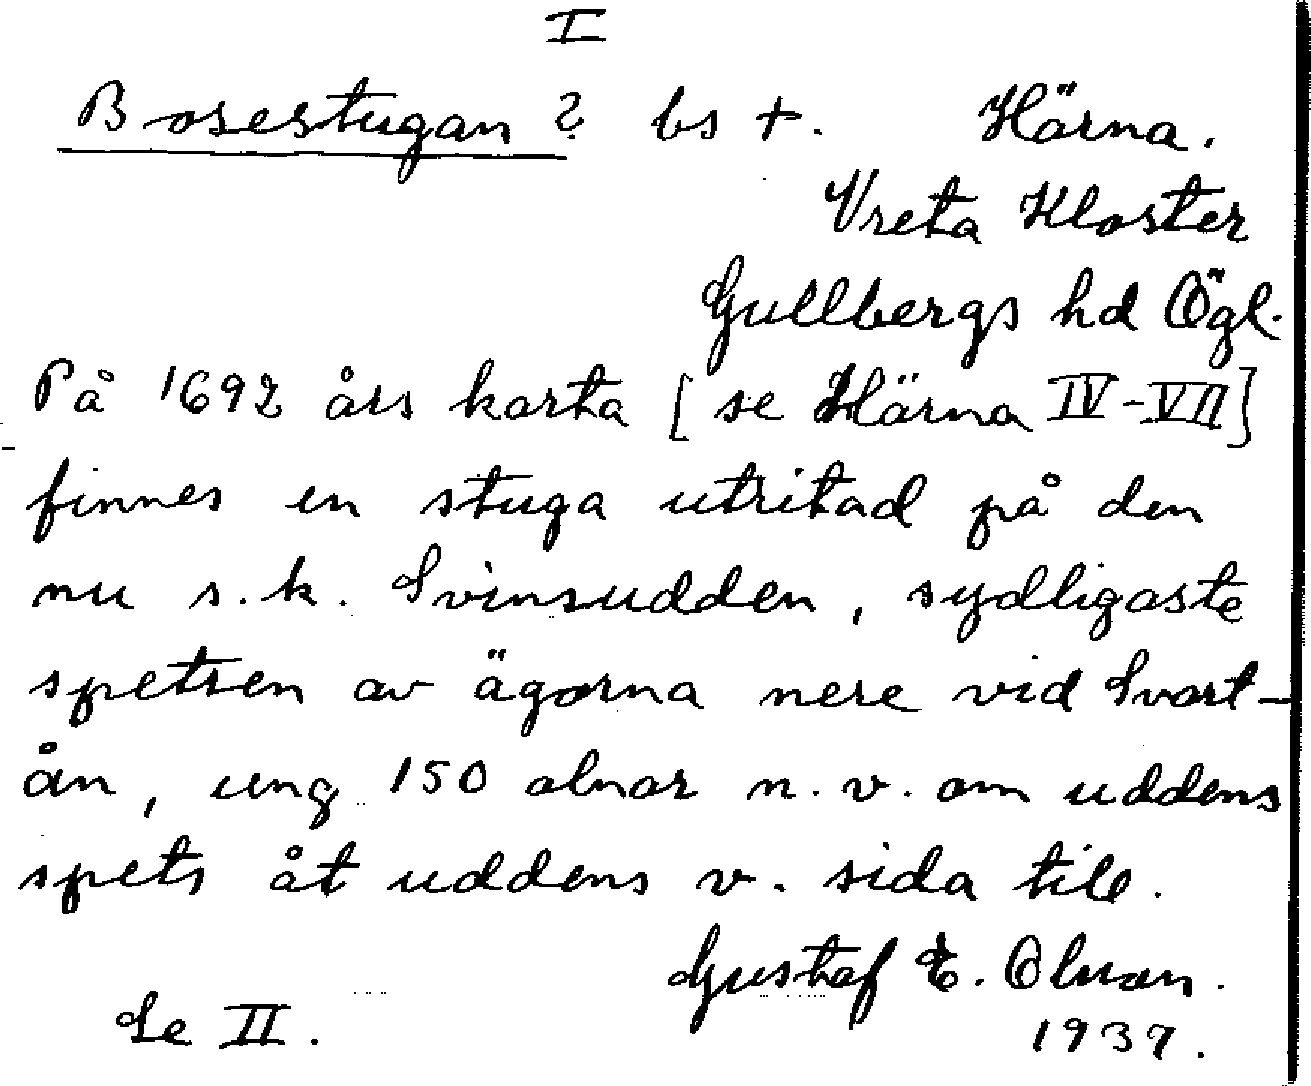 I
Bosestugan ? bs +. Härna.
Vreta Kloster
Gullbergs hd Ögl.
På 1692 års karta [se Härna IV-VII]
finnes en stuga utritad på den
nu s.k. Svinsudden, sydligaste
spetsen av ägorna nere vid Svart-
ån, ung 150 alnar n.v. om uddens
spets åt uddens v. sida till.
Gustaf E. Olman.
Se II. 1937.